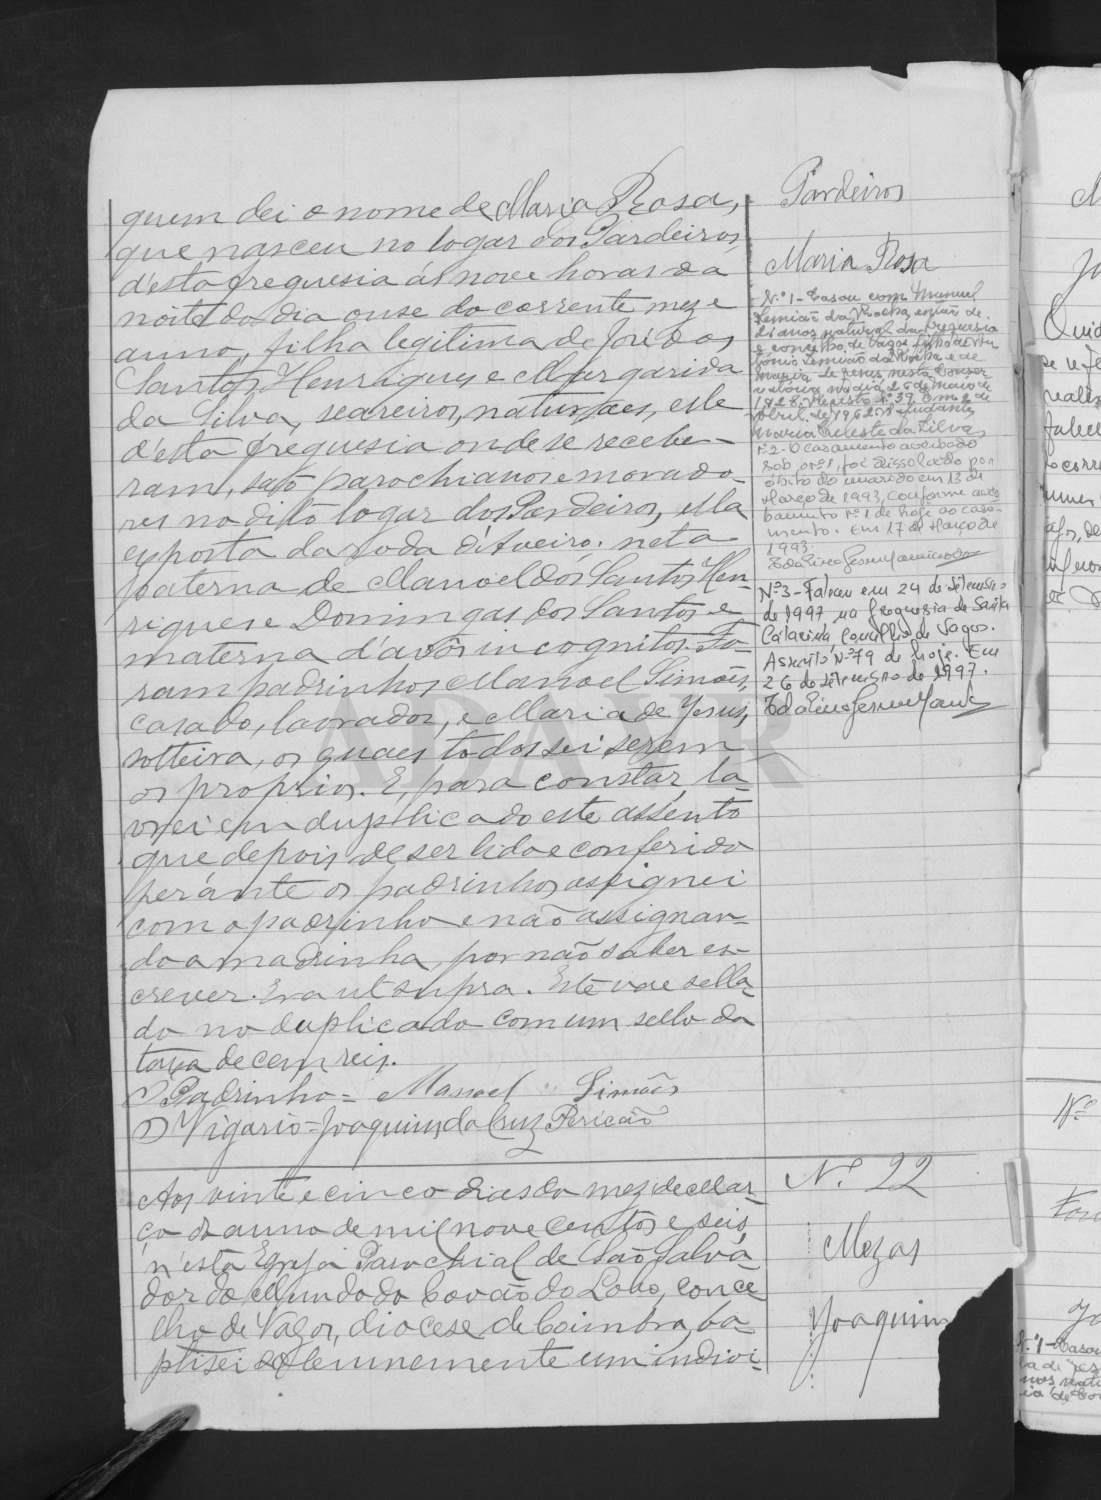 quem dei o nome de Maria Rosa,
que nasceu no logar dos Pardeiros
d'esta freguesia ás nove horas da
noite do dia onse do corrente mez e
anno, filha legitima de José dos
Santos Henriques e Margarida
da Silva, seareiros, naturaes, elle
d'esta freguesia onde se recebe-
ram, são parochianos e morado-
res no dito logar dos Pardeiros, ella
exposta da roda d'Aveiro: neta
paterna de Manoel dos Santos Hen-
riques e Domingas dos Santos e
materna d'avós incognitos. Fo-
ram padrinhos Manoel Simões,
casado, lavrador, e Maria de Jesus,
solteira, os quaes todos sei serem
os proprios. E, para constar, la-
vrei em duplicado este assento
que depois de ser lido e conferido
perante os padrinhos assignei
com o padrinho e não assignan-
do a madrinha, por não saber es-
crever. Era ut supra. Este vae sella-
do no duplicado com um sello da
taxa de cem reis.
O Padrinho = Manoel Simões
O Vigario = Joaquim da Cruz Pericão
Pardeiros
Maria Rosa
N.º 1 - Casou com Manuel
Simião da Rocha,
anos natural da freguesia
e concelho de Vagos filho de An
tónio Simião da Rocha e de
Maria de Jesus nesta Conser
vatória no dia 26 de maio de
1928. Registo n.º 39. Em 2 de
Abril de 1962. O ajudante,
Maria Celeste da Silva
N.º 2 - O casamento averbado
sob o nº 1, foi dissolvido por
óbito do marido em 13 de
Março de 1993, conforme aver
bamento nº 1 de hoje ao casa-
mento. Em 17 de Março de
1993.
Nº 3 - Faleceu em 24 de Setembro
de 1997 na freguesia de Santa
Catarina, Concelho de Vagos.
Assento Nº 79 de hoje. Em
26 de Setembro de 1997.
Aos vinte e cinco dias do mez de Mar-
ço do anno de mil nove centos e seis,
n'esta Egreja Parochial de São Salva-
dor do Mundo do Covão do Lobo, conce-
lho de Vagos, diocese de Coimbra, ba-
ptisei solemnemente um indivi-
N.º 22
Mezas
Joaquim
Nº
Nº 1 - Casou